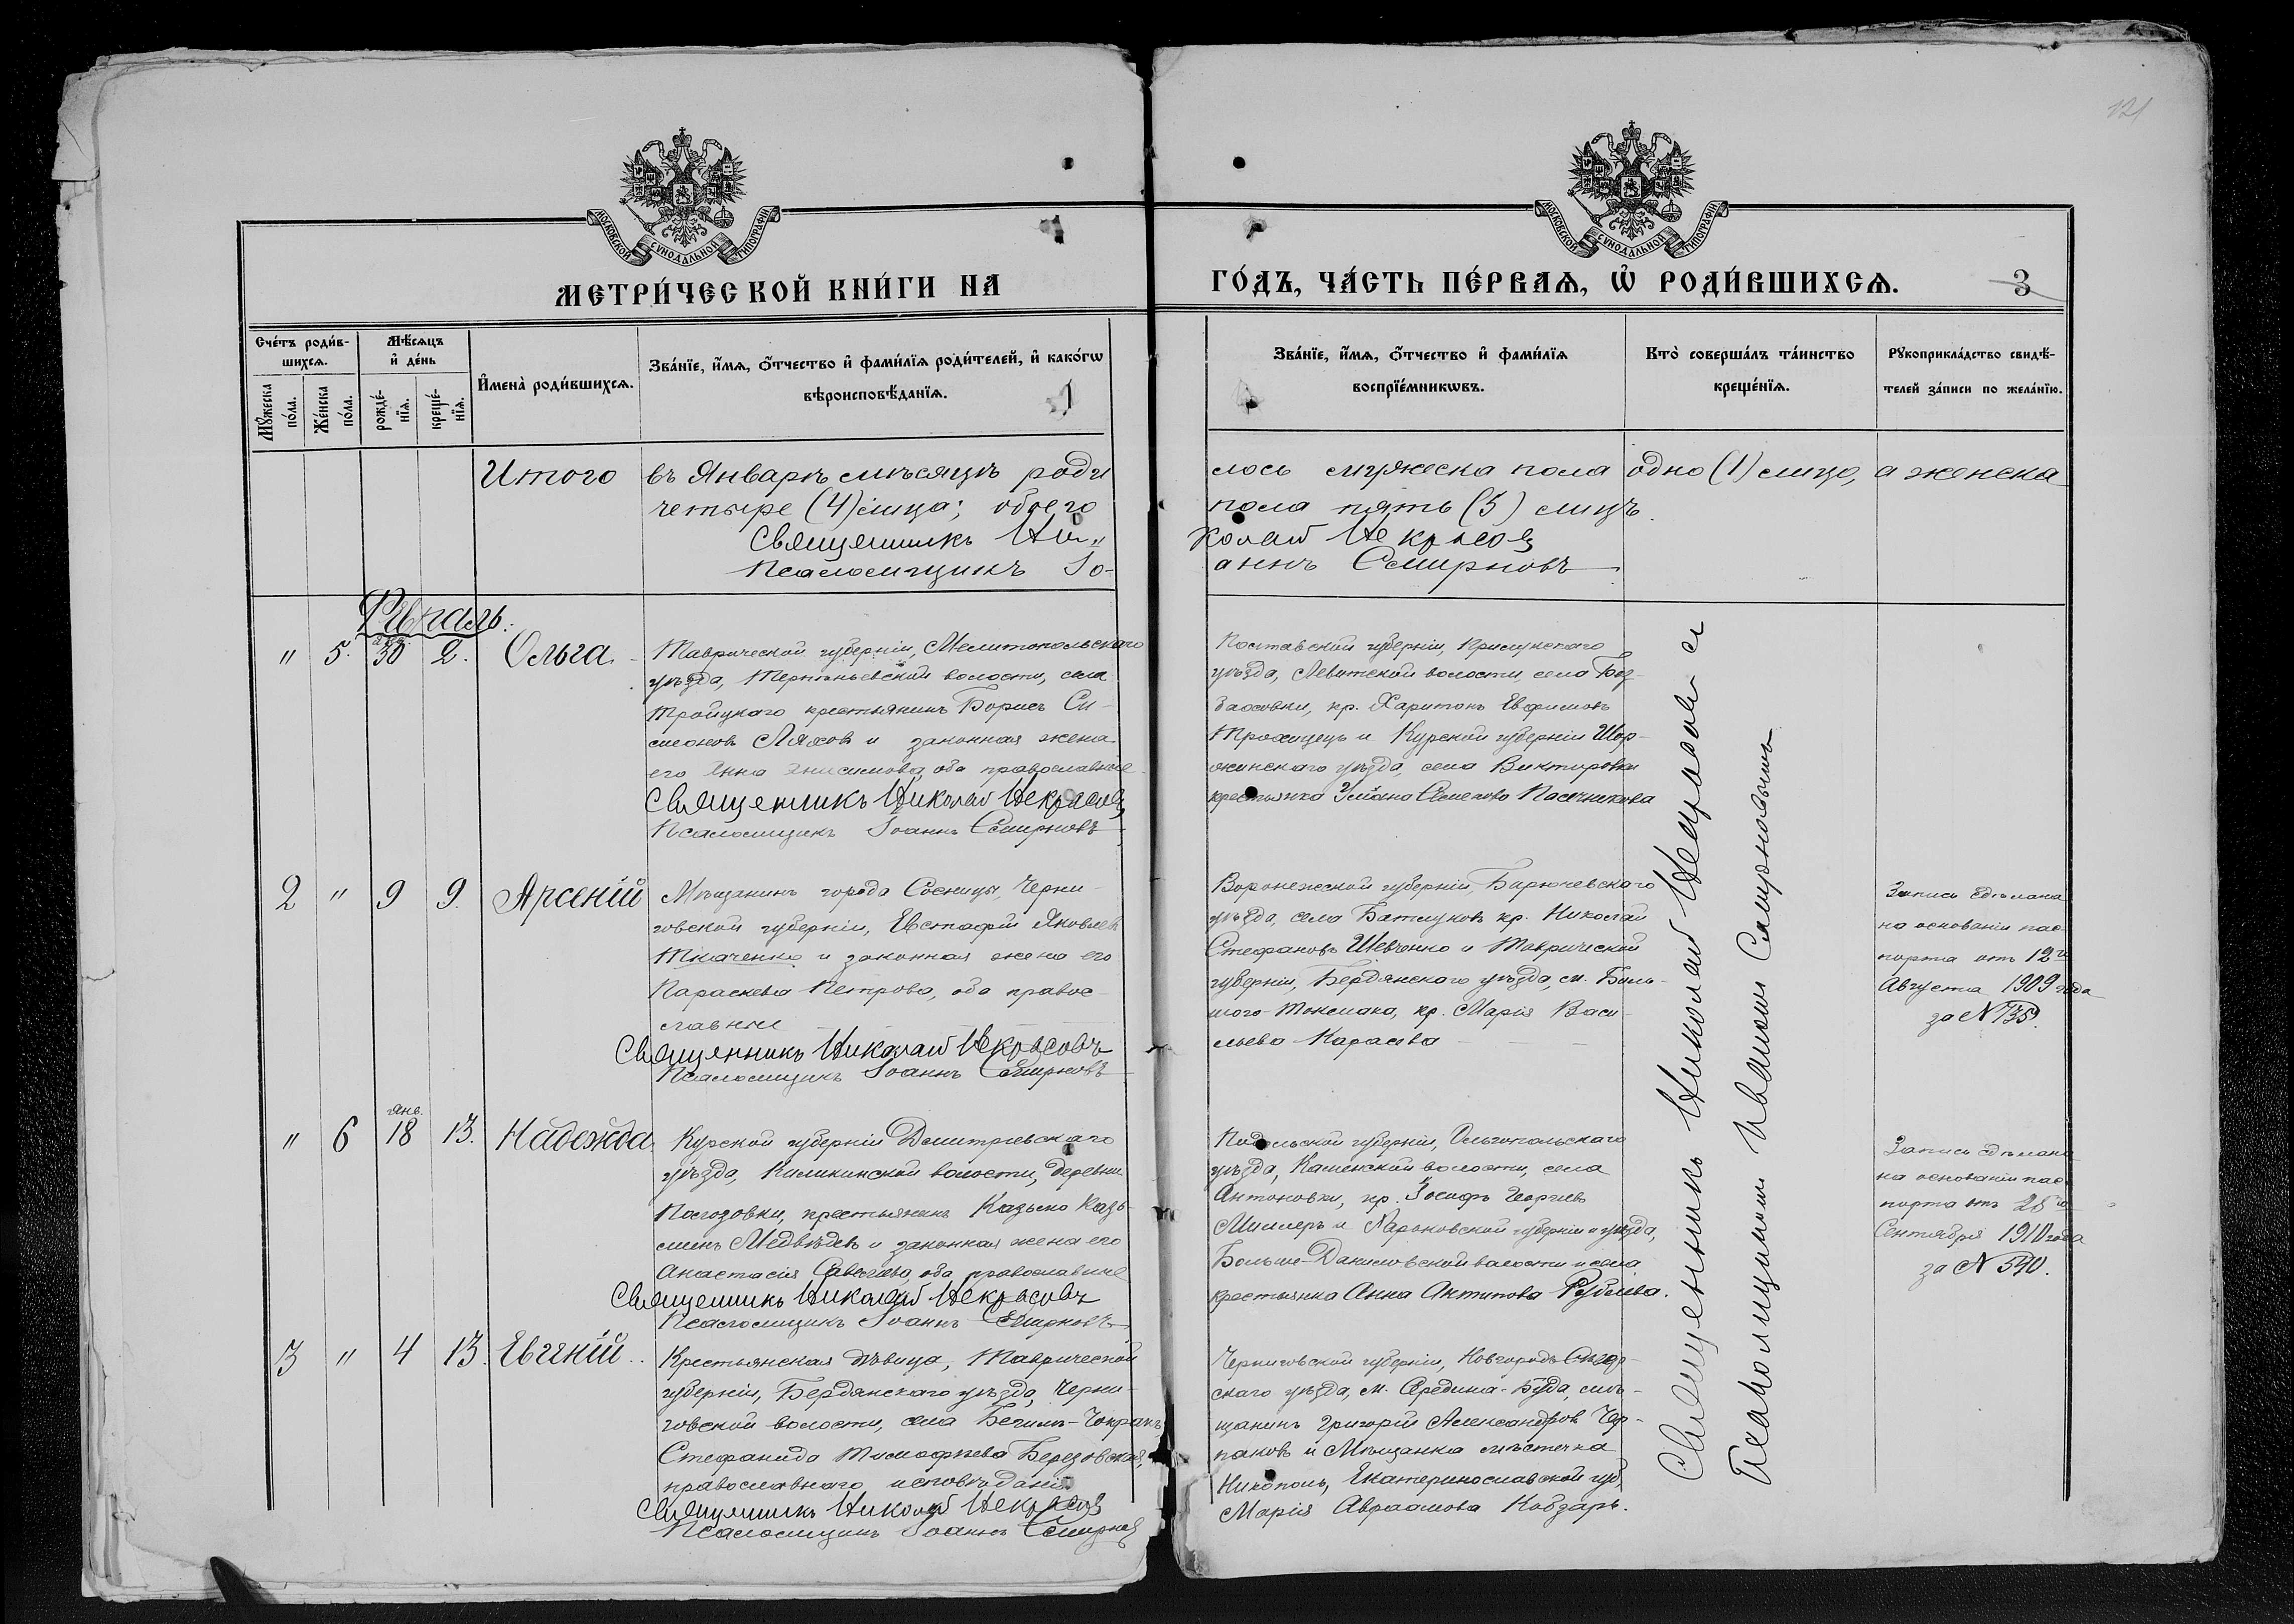 121
МОСКОВСКОЙ СѴНОДАЛЬНОЙ ТИПОГРАФІИ
МОСКОВСКОЙ СѴНОДАЛЬНОЙ ТИПОГРАФІИ
МЕТРИ́ЧЕСКОЙ КНИ́ГИ НА ГО́ДЪ, ЧА́СТЬ ПЕ́РВАѦ, Ѡ҆ РОДИ́ВШИХСѦ. 3
Сче́тъ роди́вшихсѧ.
Мꙋ́жеска по́ла.
Же́нска по́ла.
Мѣ́сѧцъ и҆ де́нь
рожде́нїѧ.
креще́нїѧ.
И҆мена̀ роди́вшихсѧ.
Зва́нїе, и҆́мѧ, ѻ҆́тчество и҆ фами́лїѧ роди́телей, и҆ како́гѡ
вѣроисповѣ́данїѧ.
Зва́нїе, и҆́мѧ, ѻ҆́тчество и҆ фами́лїѧ
воспрїе́мникѡвъ.
Кто̀ соверша́лъ та́инство
креще́нїѧ.
Рꙋкоприкла́дство свидѣ́-
телей за́писи по жела́нїю.
Итого въ Январѣ мѣсяцѣ роди лось мужеска пола одно (1) лицо, а женска
четыре (4) лица; обоего пола пять (5) лицъ.
Священникъ Ни„ колай Некрасовъ
Псаломщикъ Іо- аннъ Смирновъ
Февраль:
" 5. янв. 30 2. Ольга.
Таврической губерніи, Мелитопольскаго
уѣзда, Терпѣньевской волости, села
Троицкаго крестьянинъ Борисъ Си-
моновъ Ляховъ и законная жена
его Анна Анисимова, оба православные
Священникъ Николай Некрасовъ
Псаломщикъ Іоаннъ Смирновъ
Полтавской губерніи,
уѣзда, волости, села Бог-
дановки, кр. Харитонъ Евфимовъ
и Курской губерніи
уѣзда, села Викторовки
крестьянка Семенова Пасечникова
2 " 9 9. Арсеній
Мѣщанинъ города Сосницы, Черни-
говской губерніи, Евстафій Яковлевъ
Ткаченко и законная жена его
Параскева Петрова, оба правос-
лавные
Священникъ Николай Некрасовъ
Псаломщикъ Іоаннъ Смирновъ
Воронежской губерніи, Бирюченскаго
уѣзда, села кр. Николай
Стефановъ Шевченко и Таврической
губерніи, Бердянскаго уѣзда, м. Боль-
шого-Токмака, кр. Марія Васи-
льева Караева
Запись сдѣлана
на основаніи пас-
порта отъ 12го
Августа 1909 года
за № 735.
" 6 янв. 18 13. Надежда
Курской губерніи Дмитріевскаго
уѣзда, волости, деревни
Погодовки, крестьянинъ Козьма Козь-
минъ Медвѣдевъ и законная жена его
Анастасія Савельева, оба православные
Священникъ Николай Некрасовъ
Псаломщикъ Іоаннъ Смирновъ
Подольской губерніи, Ольгопольскаго
уѣзда, Каменской волости, села
Антоновки, кр. Іосифъ Георгіевъ
Миллеръ и Харьковской губерніи и уѣзда,
Больше-Даниловской волости и села
крестьянка Анна Антипова Рублева.
Запись сдѣлана
на основаніи пас-
порта отъ 28го
Сентября 1910 года
за № 590.
3 " 4 13. Евгеній
Крестьянская дѣвица, Таврической
губерніи, Бердянскаго уѣзда, Черни-
говской волости, села Бегимъ-Чокракъ
Стефанида Тимофѣева Березовская,
православнаго исповѣданія
Священникъ Николай Некрасовъ
Псаломщикъ Іоаннъ Смирновъ
Черниговской губерніи, Новгородъ-Сѣвер-
скаго уѣзда, м. Середина-Буда, мѣ-
щанинъ Григорій Александровъ Чер-
паковъ и Мѣщанка мѣстечка
Никополь, Екатеринославской губ.
Марія Авраамова Кобзарь.
Священникъ Николай Некрасовъ съ
Псаломщикомъ Іоанномъ Смирновымъ